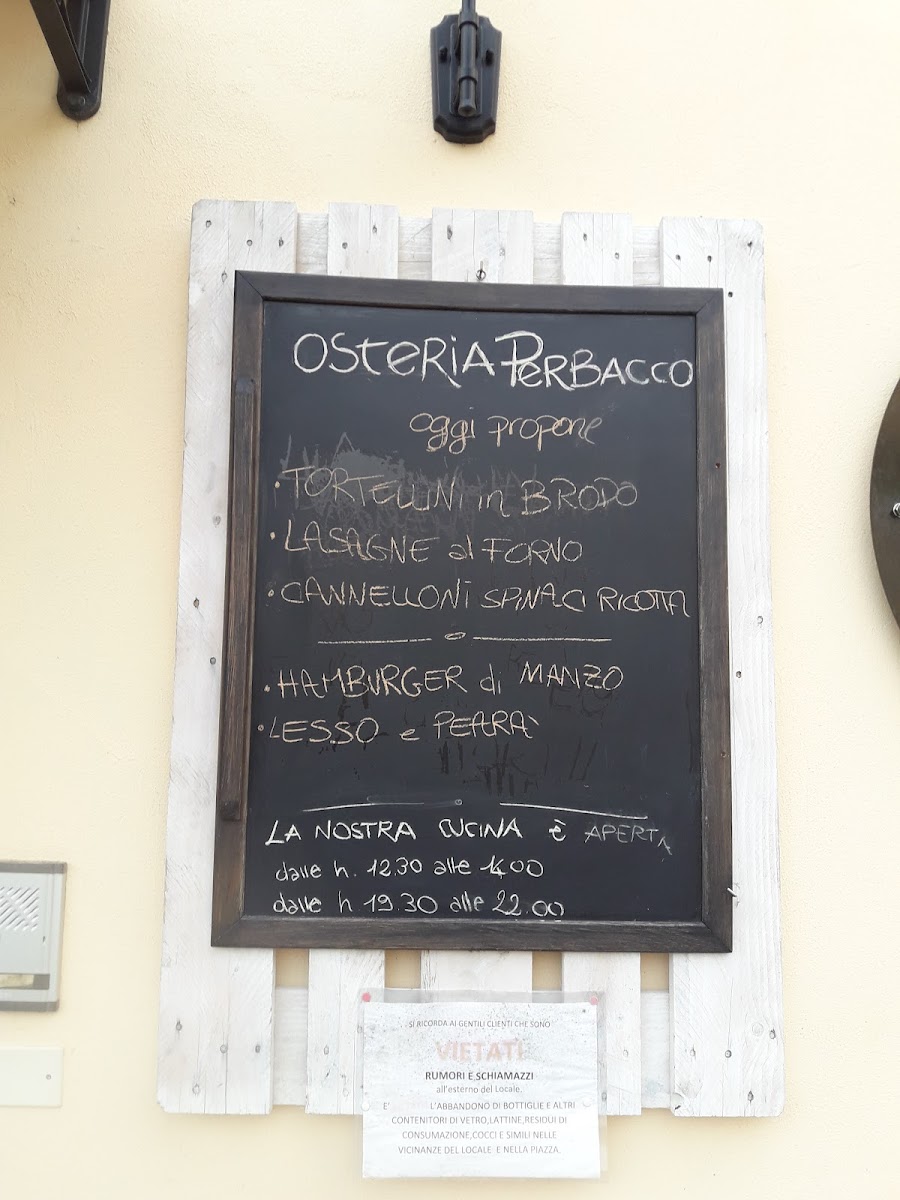 OSTERIA PERBACCO
oggi propone
· TORTELLINI in BRODO
· LASAGNE al FORNO
· CANNELLONI SPINACI RICOTTA
· HAMBURGER di MANZO
· LESSO e PEARÀ
LA NOSTRA CUCINA È APERTA
dalle h. 12.30 alle 14.00
dalle h 19.30 alle 22.00
SI RICORDA AI GENTILI CLIENTI CHE SONO
VIETATI
RUMORI E SCHIAMAZZI
all'esterno del Locale.
E' L'ABBANDONO DI BOTTIGLIE E ALTRI
CONTENITORI DI VETRO,LATTINE,RESIDUI DI
CONSUMAZIONE,COCCI E SIMILI NELLE
VICINANZE DEL LOCALE E NELLA PIAZZA.